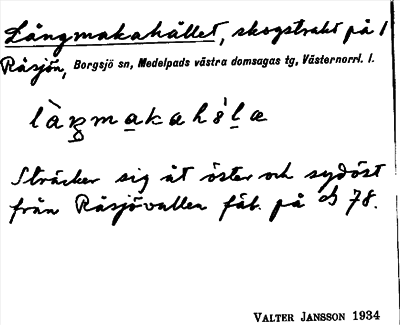 Långmakahället, skogstrakt på
Råsjön, Borgsjö sn, Medelpads västra domsagas tg, Västernorrl. l.
Sträcker sig åt öster och sydöst
från Råsjövallen fäb. på 78.
VALTER JANSSON 1934